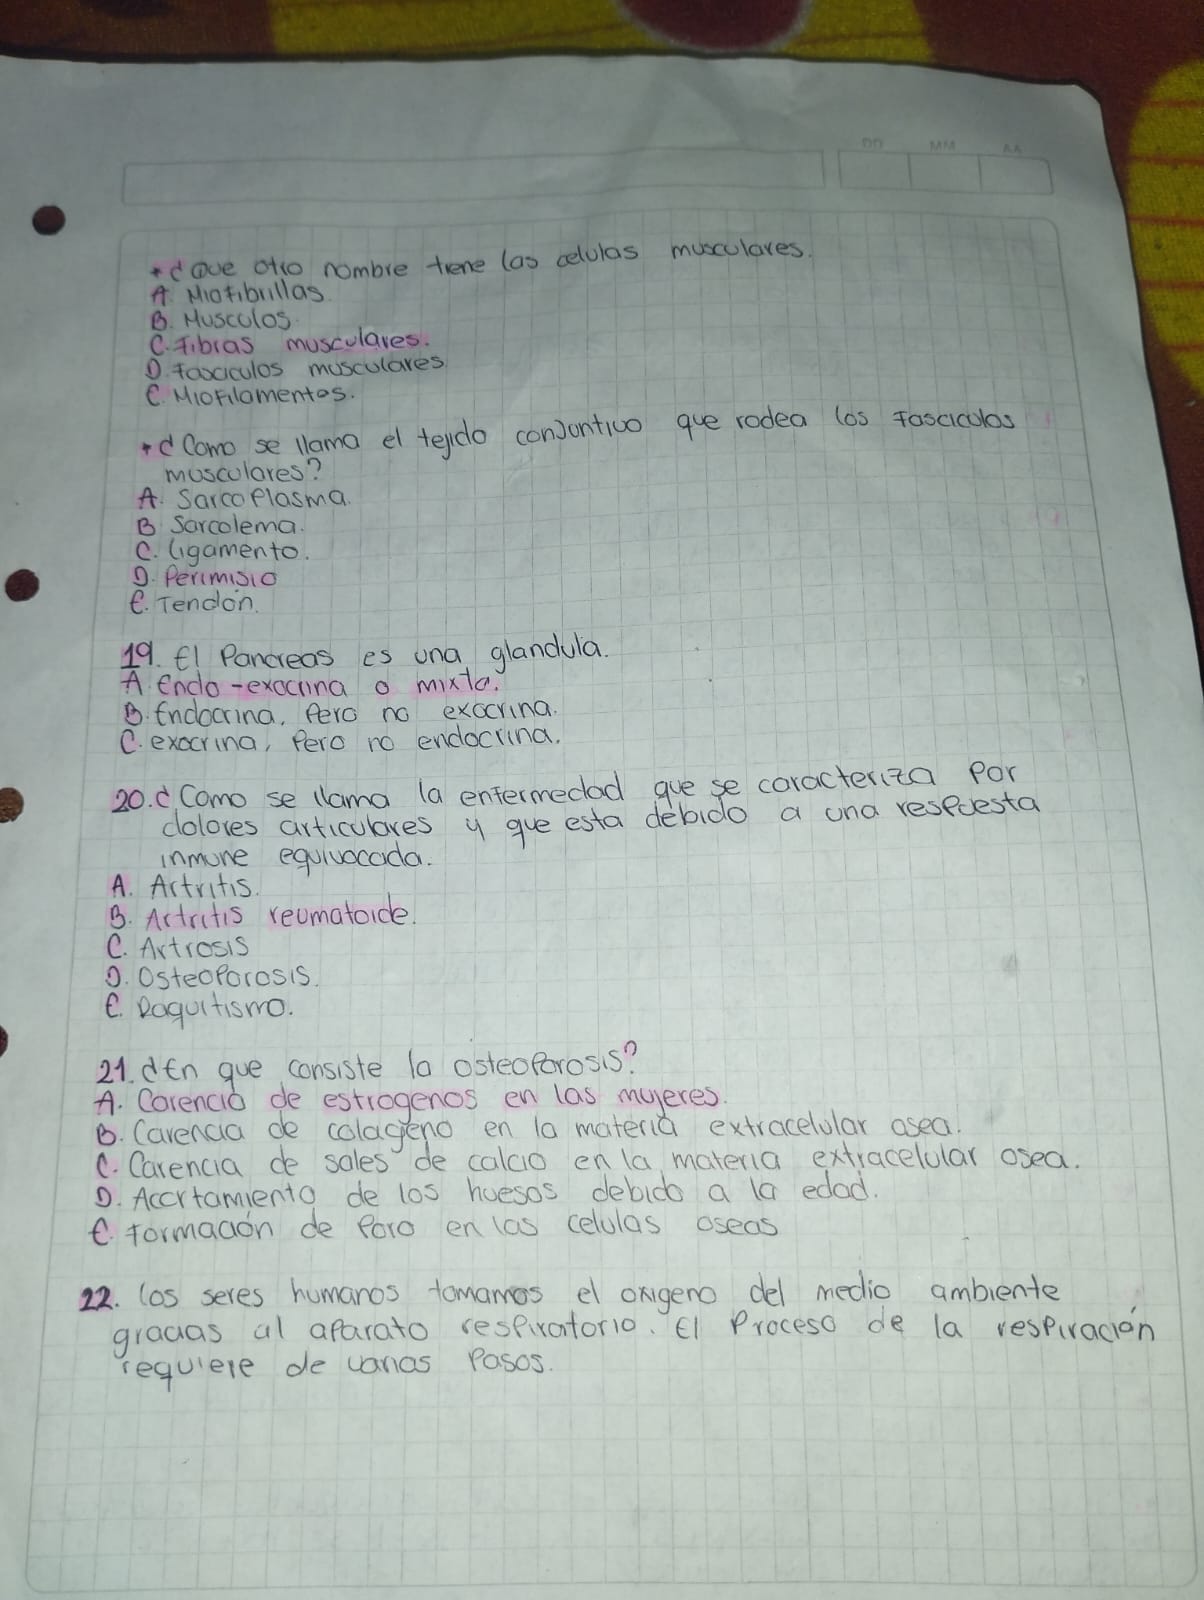 DD MM AA
*¿Que otro nombre tiene las celulas musculares.
A. Miofibrillas.
B. Musculos.
C. Fibras musculares.
D. Fasciculos musculares
E. Miofilamentos.
*¿Como se llama el tejido conjuntivo que rodea los fasciculos
musculares?
A. Sarcoplasma.
B Sarcolema.
C. Ligamento.
D. Perimisio
E. Tendon.
19. El Pancreas es una glandula.
A Endo-exocrina o mixta.
B. Endocrina, Pero no exocrina.
C. exocrina, Pero no endocrina.
20. ¿Como se llama la enfermedad que se caracteriza Por
dolores articulares y que esta debido a una respuesta
inmune equivocada.
A. Artritis.
B. Artritis reumatoide.
C. Artrosis
D. Osteoporosis.
E. Raquitismo.
21. ¿En que consiste la osteoporosis?
A. Carencia de estrogenos en las mujeres.
B. Carencia de colageno en la materia extracelular osea.
C. Carencia de sales de calcio en la materia extracelular osea.
D. Accrtamiento de los huesos debido a la edad.
E. Formación de Poro en las celulas oseas
22. Los seres humanos tomamos el oxigeno del medio ambiente
gracias al aparato respiratorio. El Proceso de la respiración
requiere de varias Pasos.